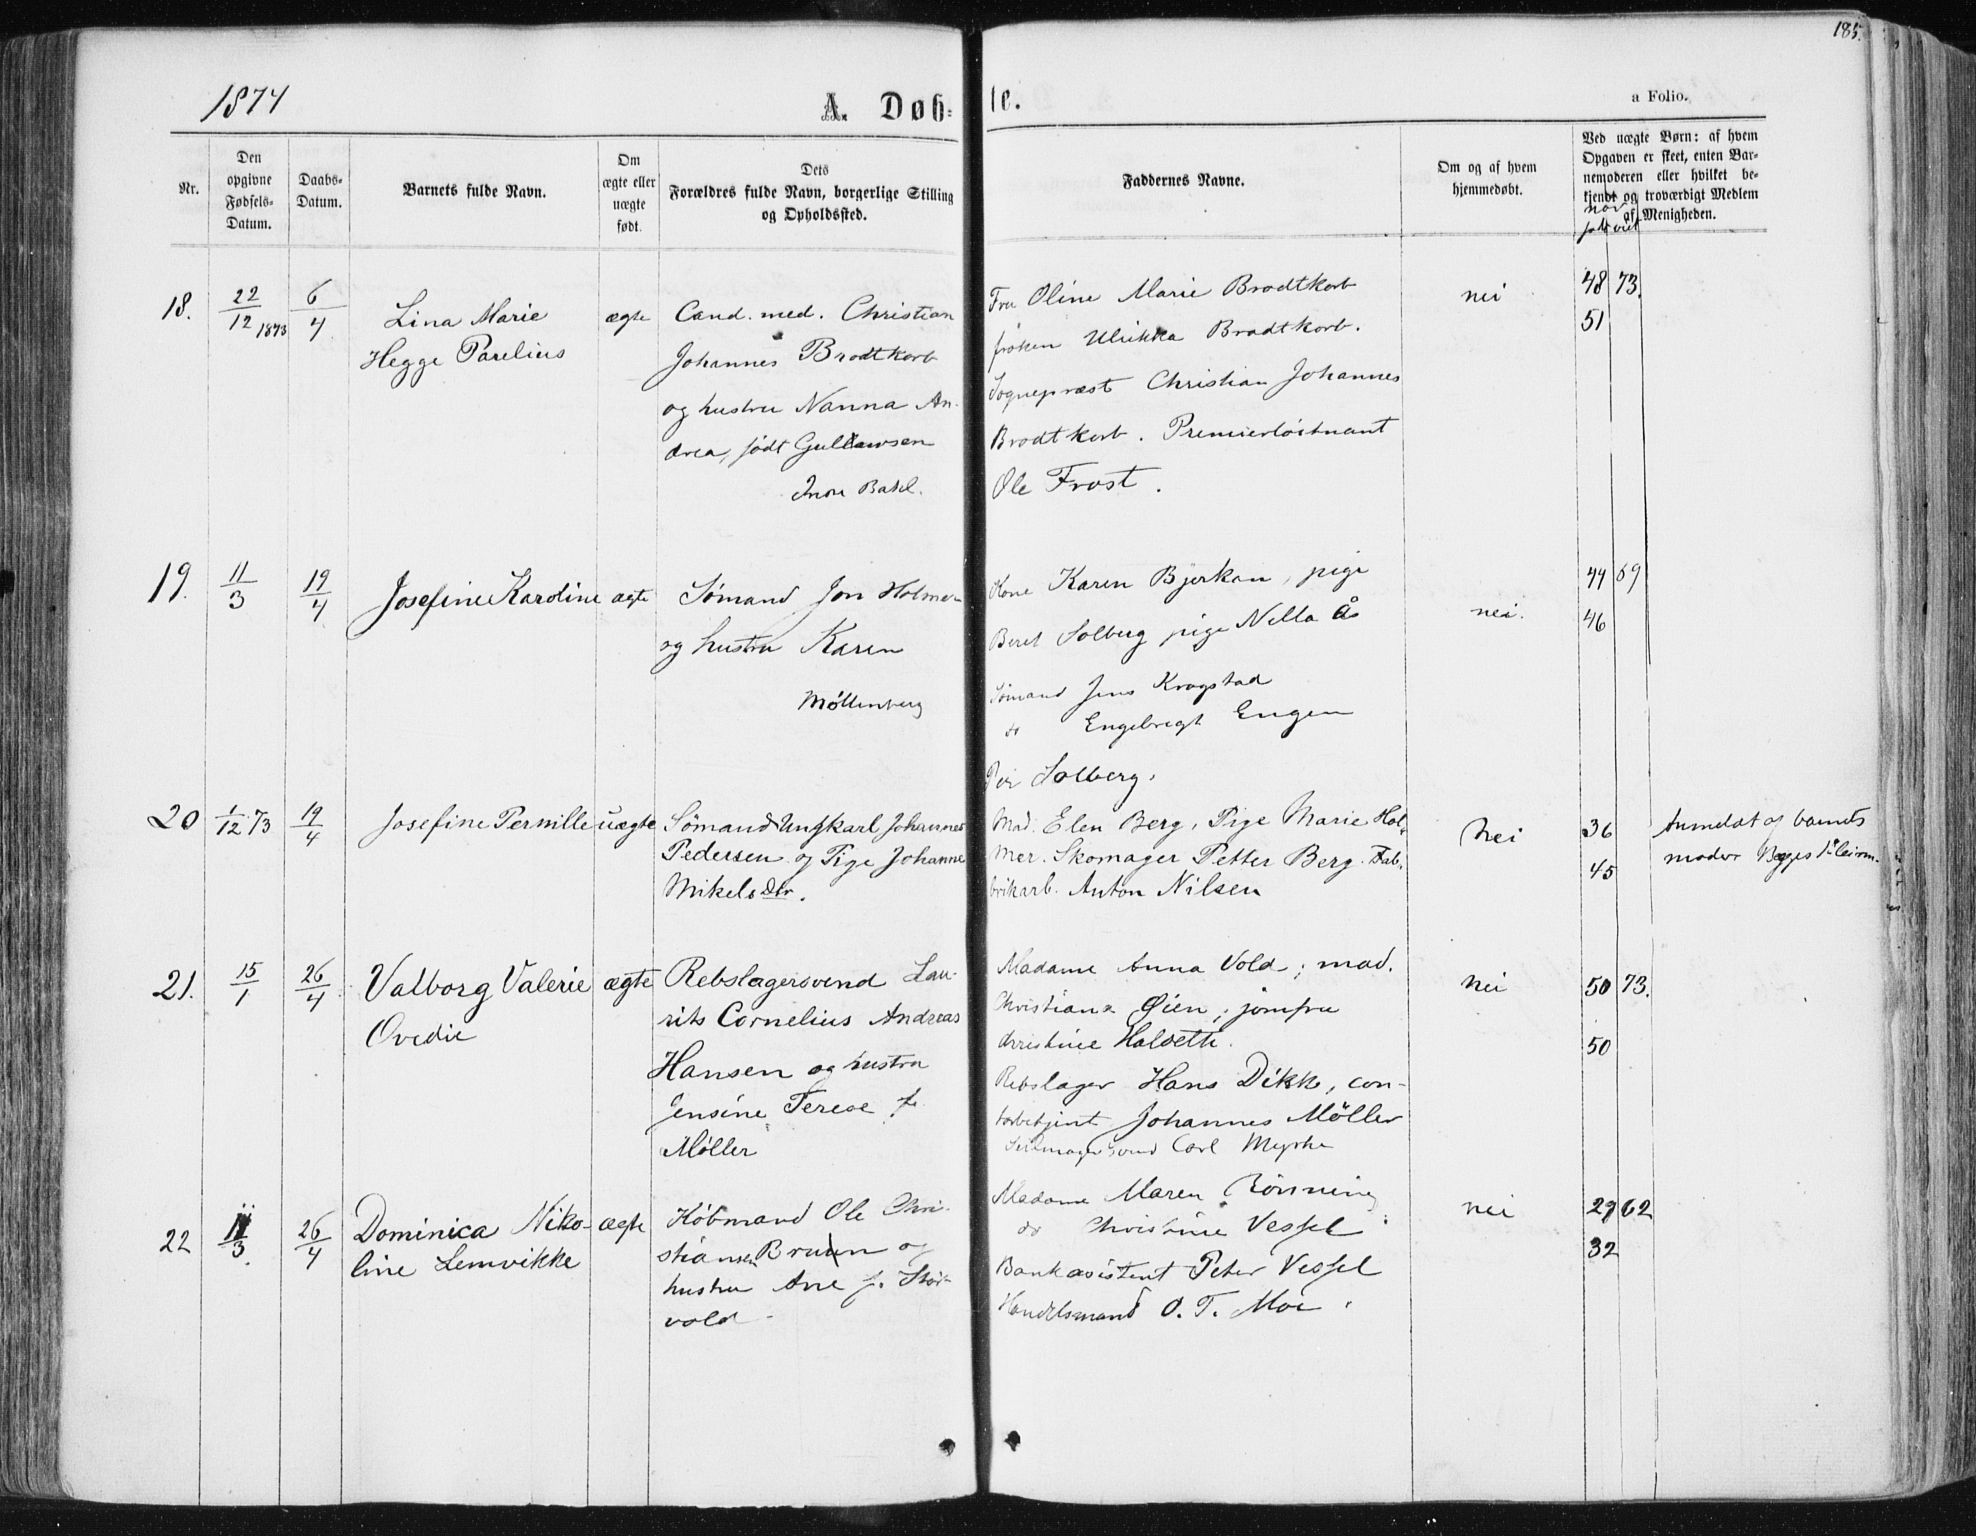 1874
A. Døbte.
a Folio.
185.
Nr.
Den opgivne Fødsels-Datum.
Daabs-Datum.
Barnets fulde Navn.
Om ægte eller uægte født.
Dets Forældres fulde Navn, borgerlige Stilling og Opholdssted.
Faddernes Navne.
Om og af hvem hjemmedøbt.
Ved uægte Børn: af hvem Opgaven er skeet, enten Barnemoderen eller hvilket bekjendt og troværdigt Medlem af Menigheden.
18.
22/12 1873
6/4
Lina Marie
Hegge Parelius
ægte
Cand. med. Christian
Johannes Brodtkorb
og hustru Nanna An-
drea, født Gullawsen
Fru Oline Marie Brodtkorb
frøken Ulrikka Brodtkorb.
Sognepræst Christian Johannes
Brodtkorb. Premierløitnant
Ole Frost.
nei
48 73.
51
19.
11/3
19/4
Josefine Karoline
ægte
Sømand Jon Holmen
og hustru Karen
Møllenberg
Kone Karen Bjerkan, pige
Beret Solberg pige Nella Ås
Sømand Jens Krogstad
do Engebregt Engen
Per Solberg.
nei.
44 69
46
20
1/12 73
19/4
Josefine Pernille
uægte
Sømand Ungkarl Johannes
Pedersen og Pige Johanne
Mikelsdtr.
Mad. Elen Berg, Pige Marie Hol-
mer. Skomager Petter Berg. Fab-
brikarb. Anton Nilsen
nei
36
45
Anmeldt af barnets
moder Begges 1ste leierm.
21.
15/1
26/4
Valborg Valerie
Ovedie
ægte
Rebslagersvend Lau-
rits Cornelius Andreas
Hansen og hustru
Jensine Terese f.
Møller
Madame Anna Vold; mad.
Christiana Øien; jomfru
Halsette.
Rebslager Hans Dikk, con-
torbetjent Johannes Møller
Seilmagersvend Carl Myrhe
nei
50 73.
50
22
11/3.
26/4
Dominica Niko-
line Lemvikke
ægte
Købmand Ole Chri-
stiansen Bruun og
hustru Ane f. Stør-
vold
Madame Maren Rönning
do Christine Vessel
Bankasistent Peter Vessel
Handelsmand O. T. Moe.
nei
29 62
32